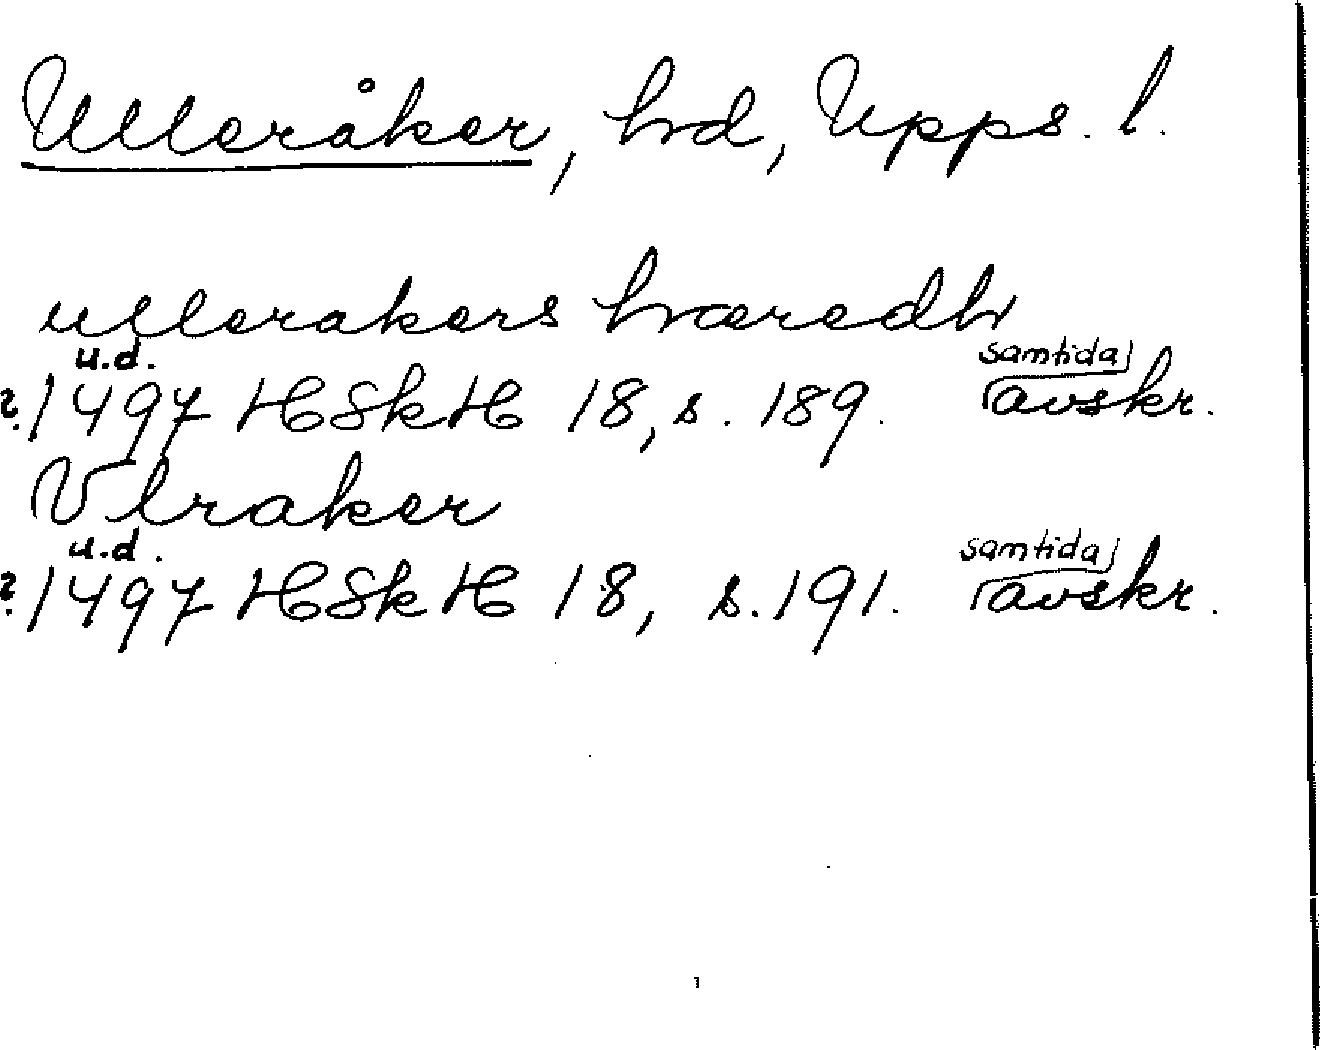 Ulleråker, hd, Upps. l.
ullerakers hæredh
u.d. samtida
?. 1497 HSkH 18, s. 189. avskr.
Vlraker
u.d. samtida
?. 1497 HSkH 18, s. 191. avskr.
1